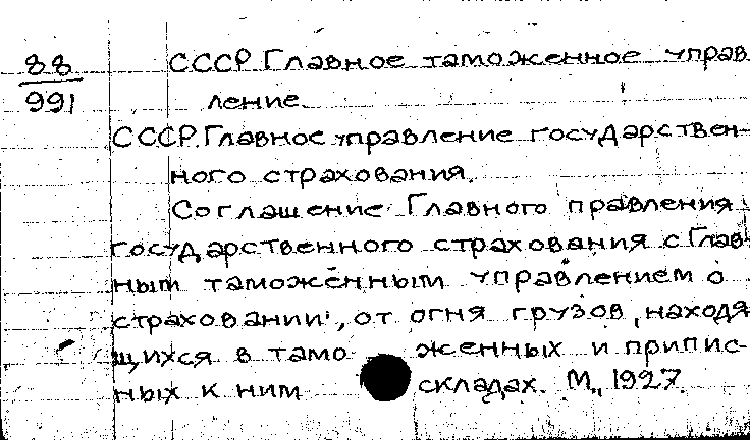 88
991
СССР. Главное таможенное управ
ление.
СССР. Главное управление государствен-
ного страхования.
Соглашение Главного правления
государственного страхования с Глав-
ным таможенным управлением о
страховании, от огня грузов, находя
щихся в тамо женных и припис-
ных к ним складах. М., 1927.